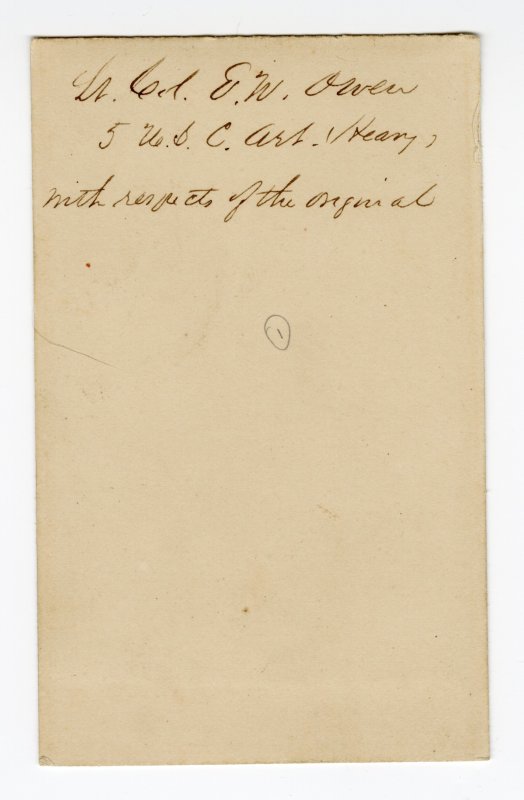 Lt. Col. E. W. Owen
5 U. S. C. Art. (Heavy)
with respects of the original
1